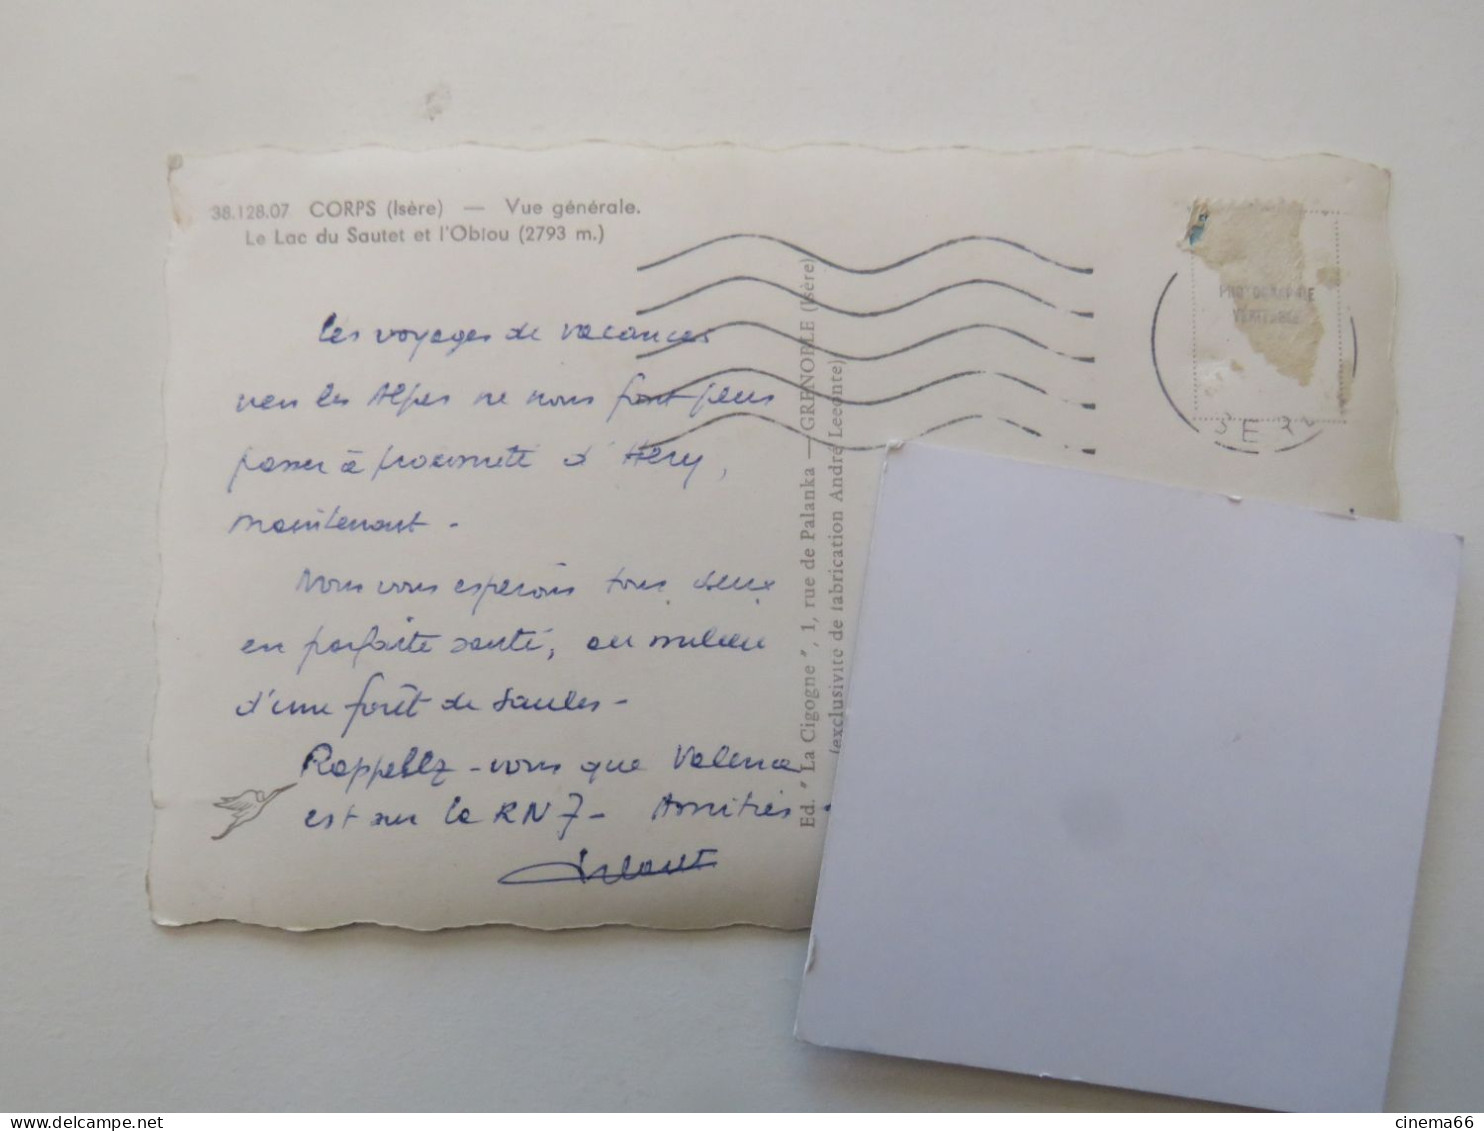 38.128.07 CORPS (Isère) — Vue générale.
Le Lac du Sautet et l'Obiou (2793 m.)
Les voyages de vacances
vers les Alpes ne nous font plus
passer à proximité d'Héry,
maintenant -
Nous vous espérons tous deux
en parfaite santé, au milieu
d'une forêt de saules -
Rappellez-vous que Valence
est sur la RN7 - Amitiés
Ed. "La Cigogne", 1, rue de Palanka — GRENOBLE (Isère)
(exclusivité de fabrication André Leconte)
PHOTOGRAPHIE
VERITABLE
cinema66